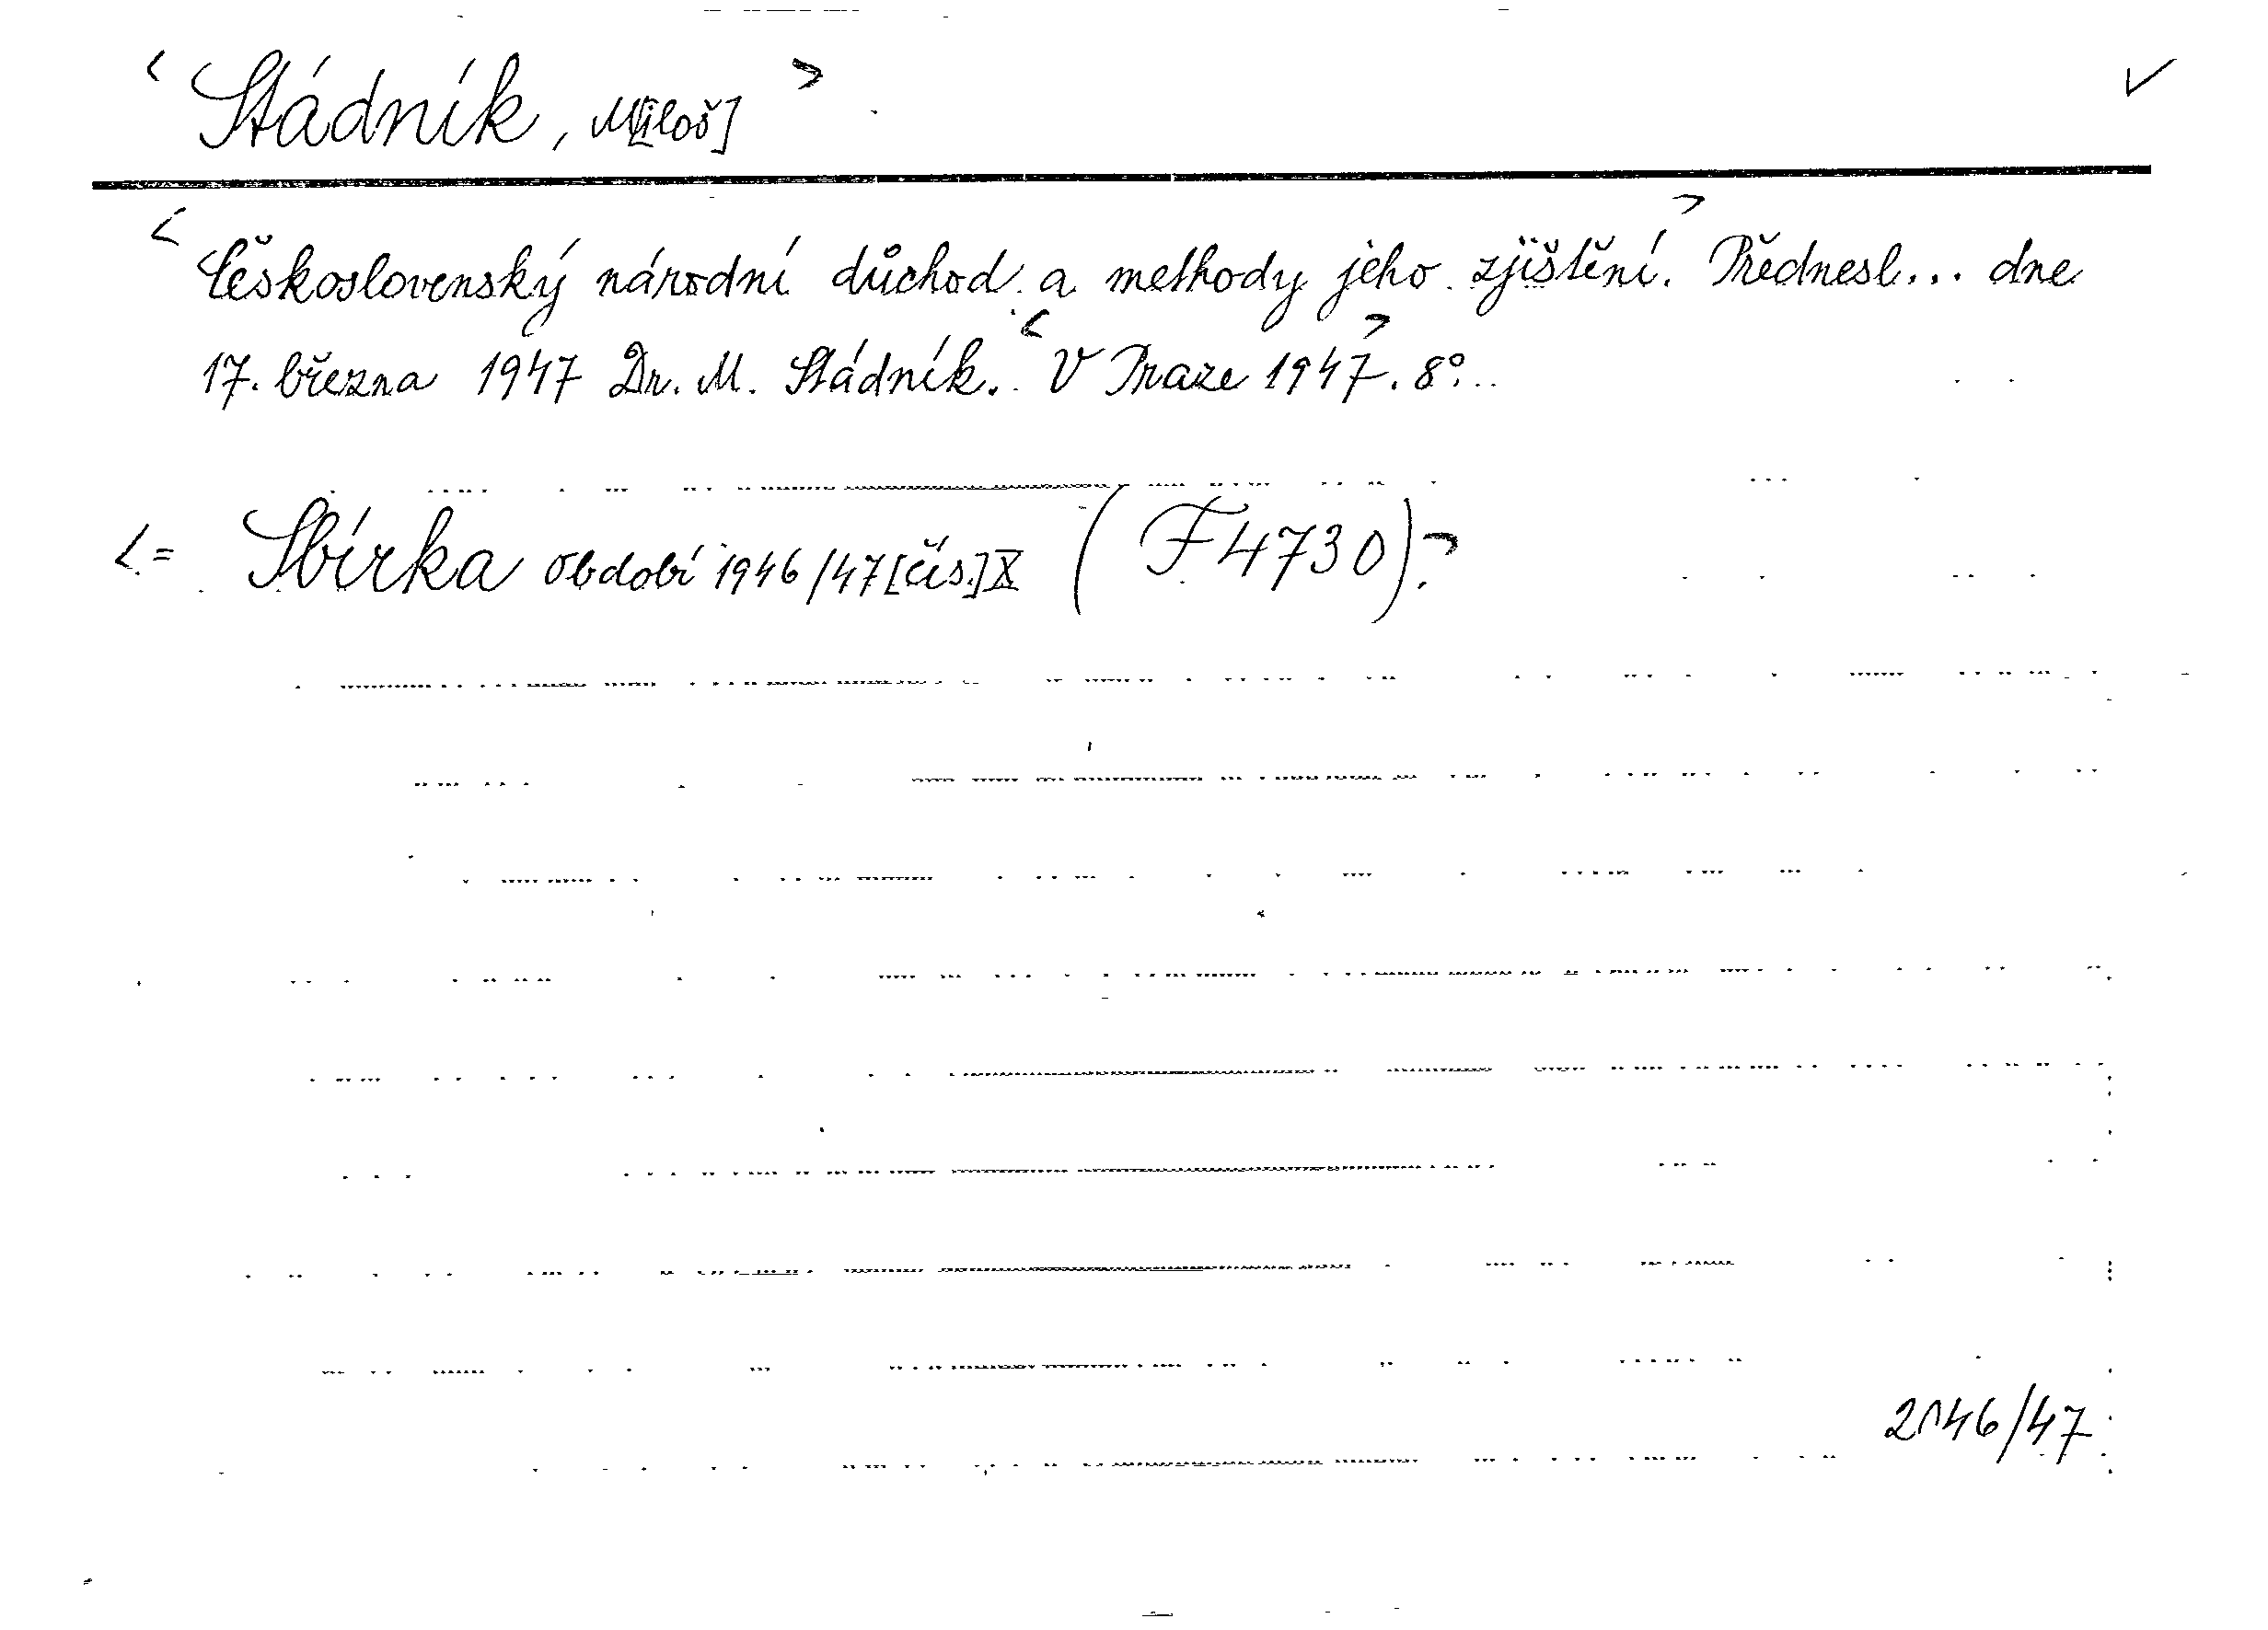 < Stádník, M[iloš] > ✓
< Československý národní důchod a methody jeho zjištění. > Přednesl... dne
17. března 1947 Dr. M. Stádník. < V Praze 1947. > 8°.
< = Sbírka období 1946/47 [čís.] X (F 4730) >
2146/47